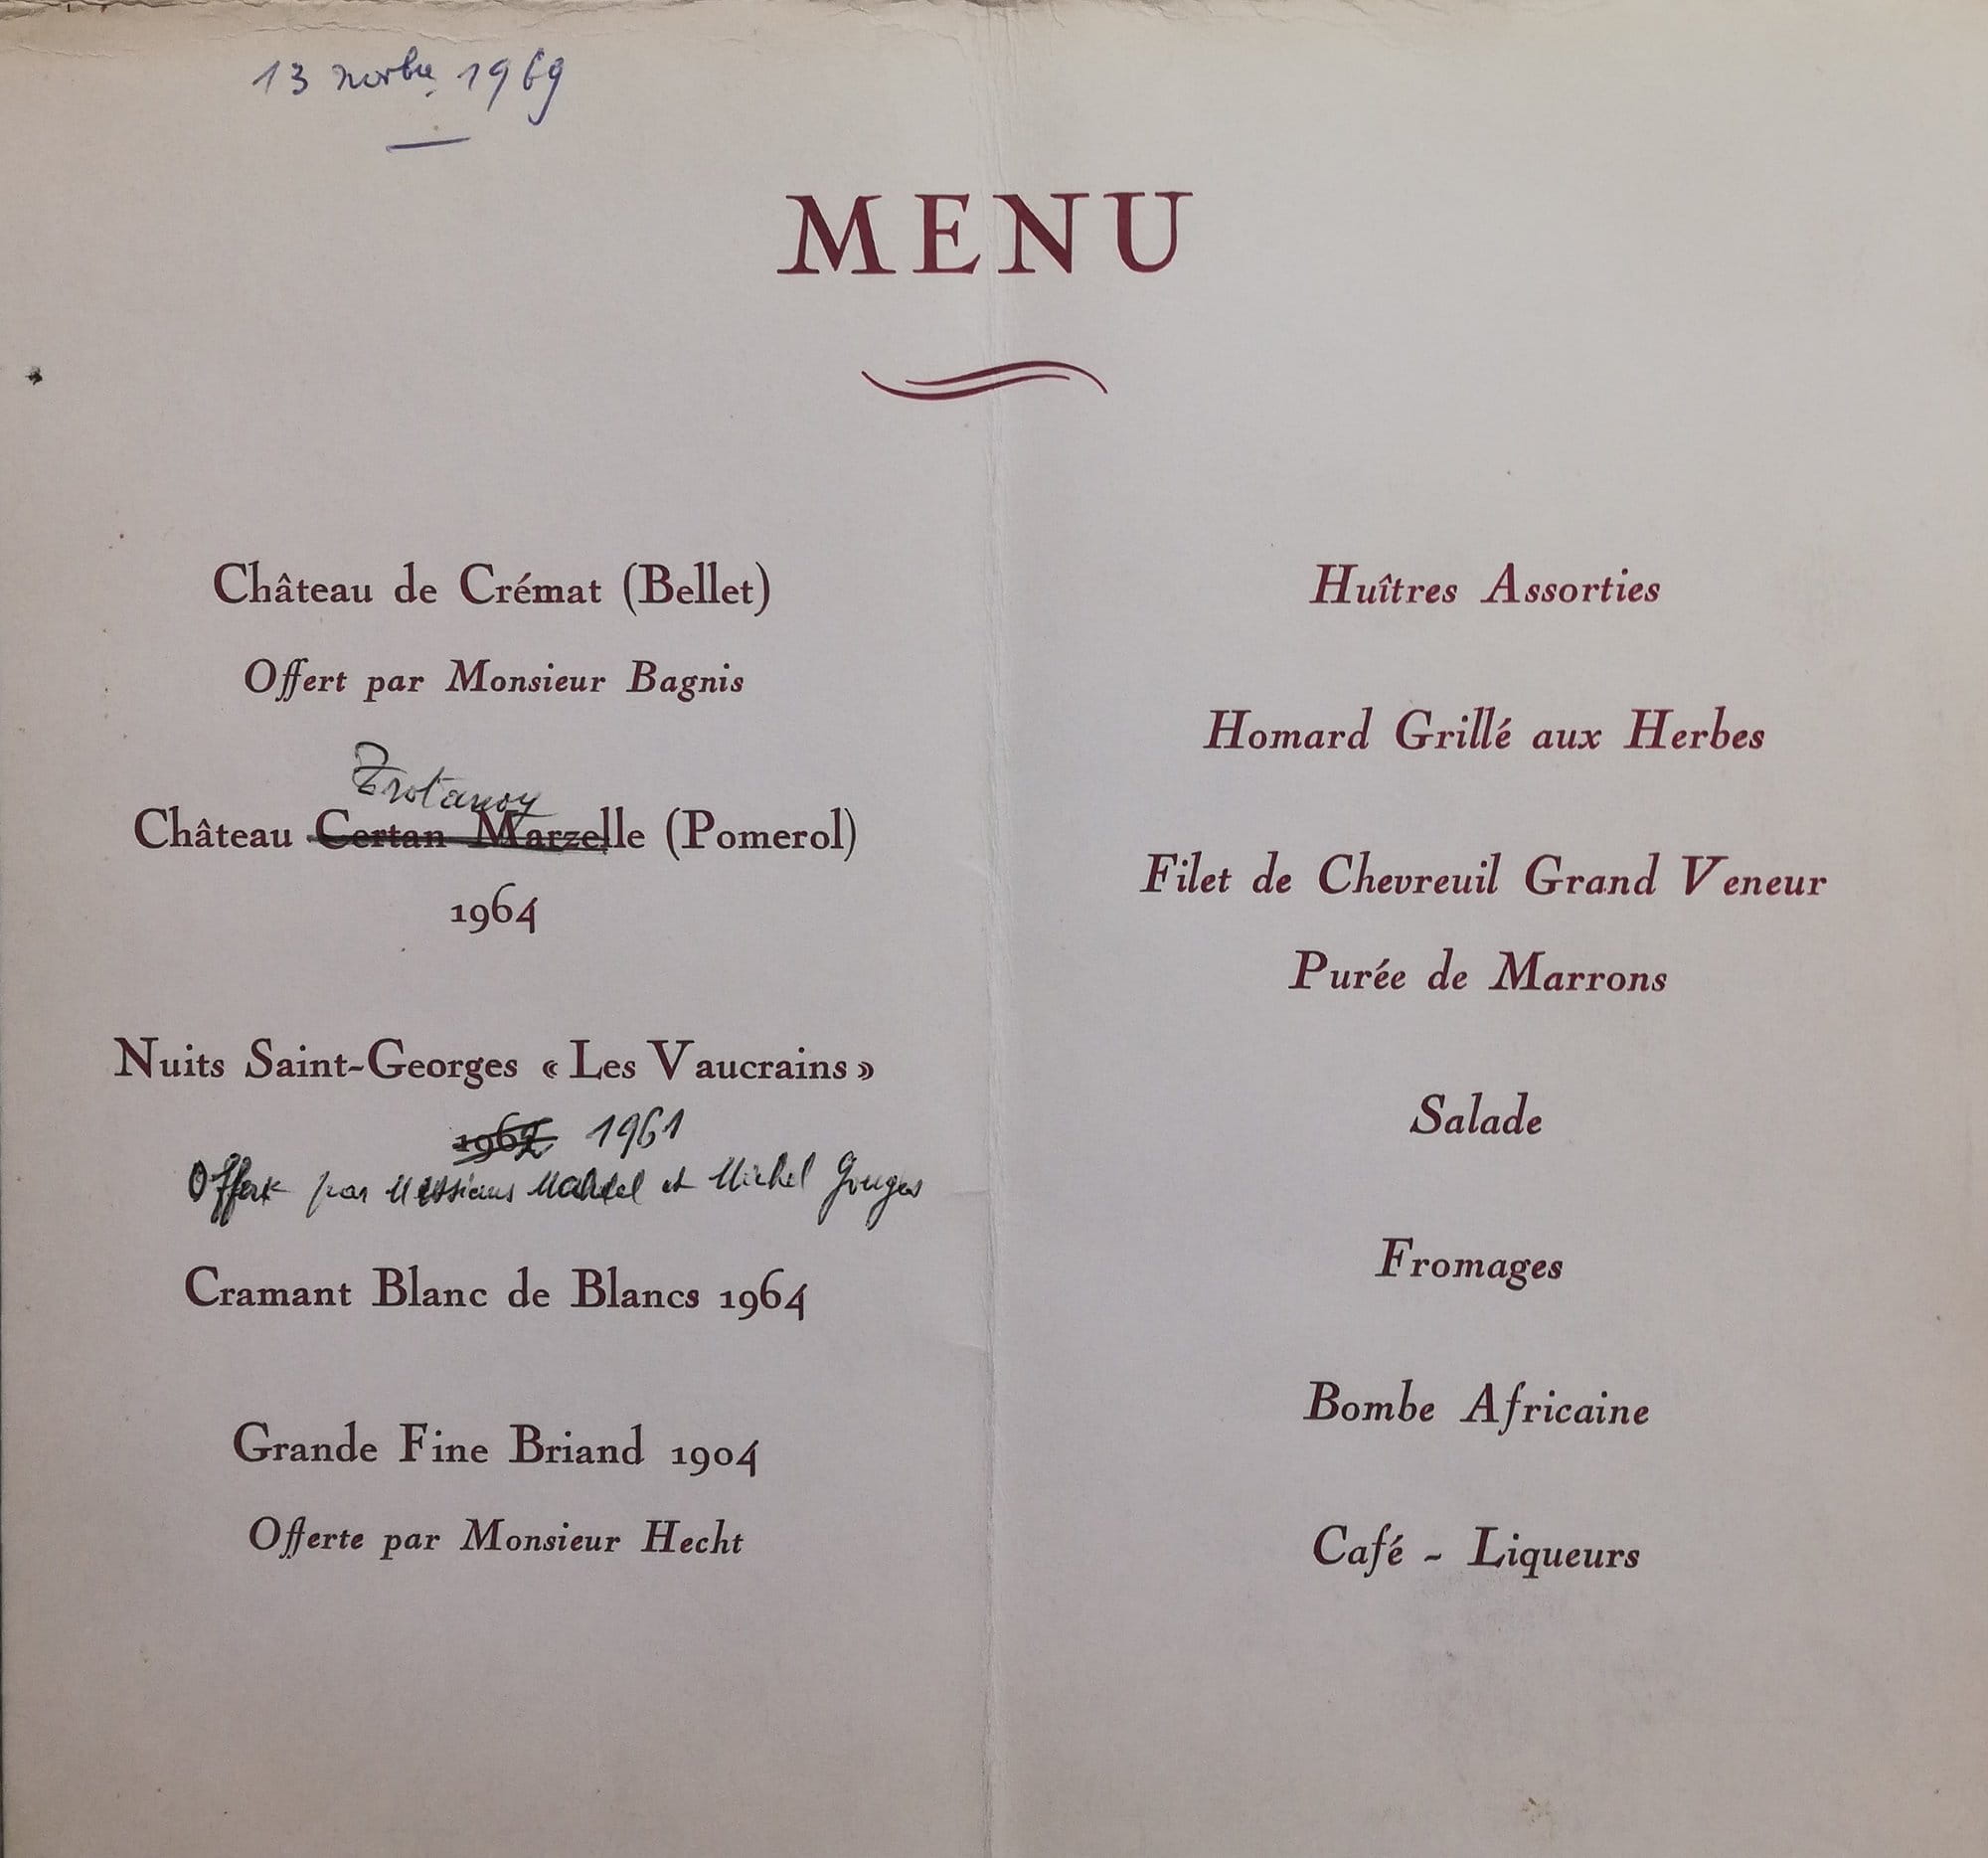 13 novbre 1969
MENU
Château de Crémat (Bellet)
Offert par Monsieur Bagnis
Trotanoy
Château Certan Marzelle (Pomerol)
1964
Nuits Saint-Georges « Les Vaucrains »
1962 1961
Offert par Messieurs Marcel et Michel Gouges
Cramant Blanc de Blancs 1964
Grande Fine Briand 1904
Offerte par Monsieur Hecht
Huîtres Assorties
Homard Grillé aux Herbes
Filet de Chevreuil Grand Veneur
Purée de Marrons
Salade
Fromages
Bombe Africaine
Café - Liqueurs